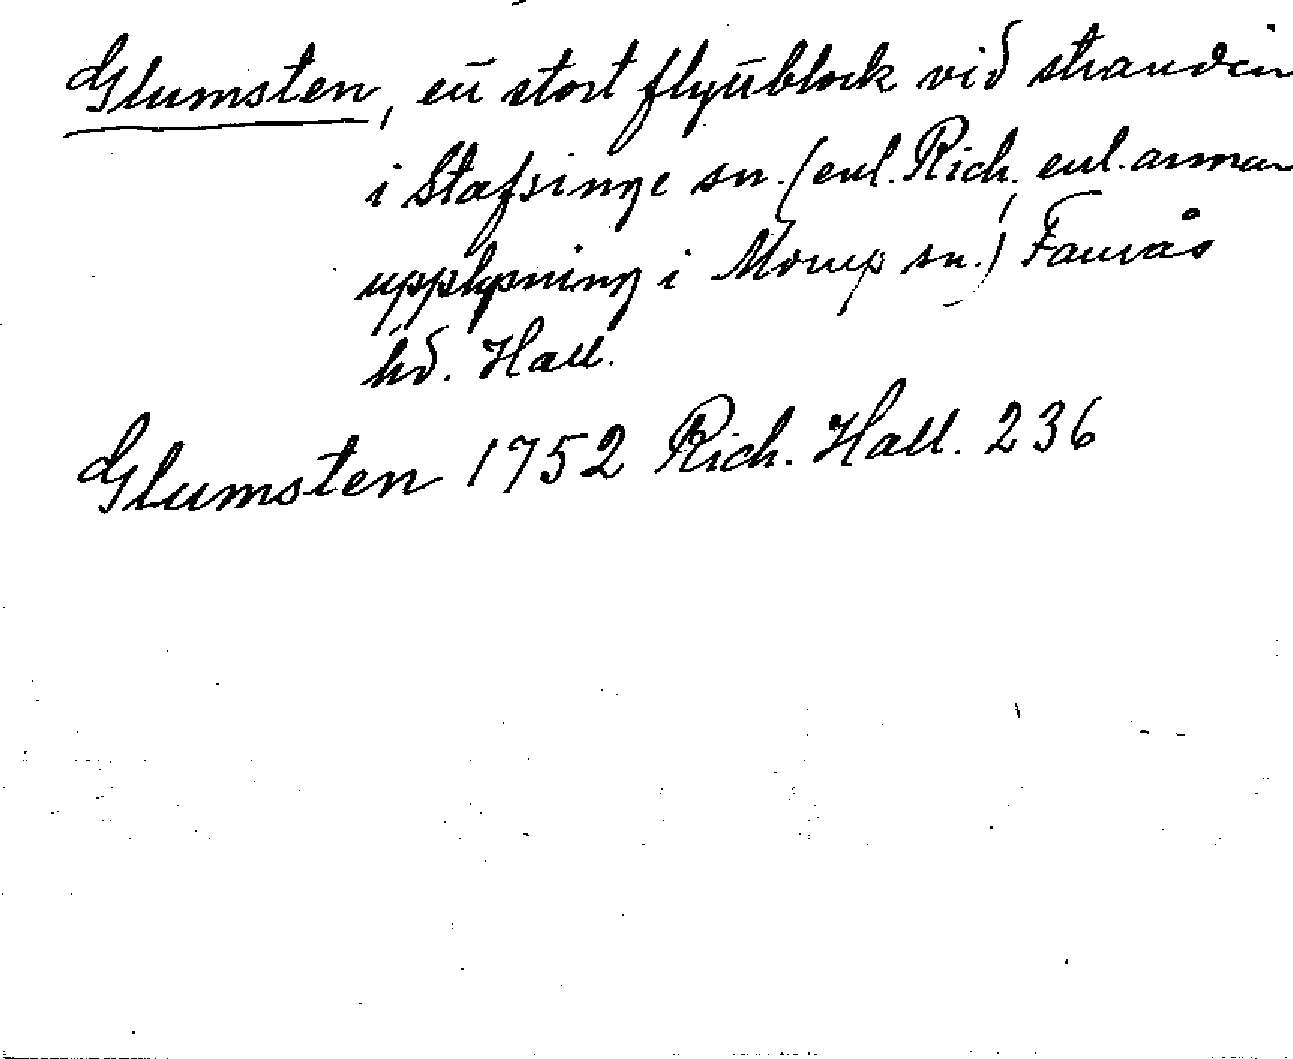 Glumsten, ett stort flyttblock vid stranden
i Stafsinge sn. (enl. Rich., enl. annan
upplysning i Morup sn.) Faurås
hd. Hall.
Glumsten 1752 Rich. Hall. 236